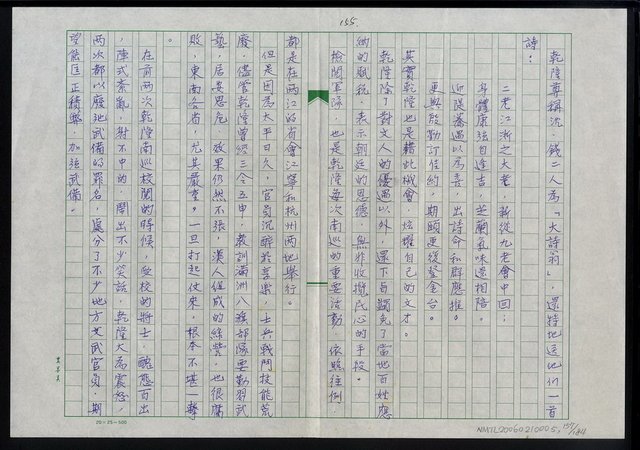 155.
乾隆尊稱沈、錢二人為「大詩翁」，還特地送他們一首
詩：
二老江浙之大老，新從九老會中回；
身體康強自逢吉，芝蘭氣味還相陪。
迎隄恭遇以為喜，出詩命和群應推。
更與殷勤訂佳約，期頤更復登金台。
其實乾隆也是藉此機會，炫耀自己的文才。
乾隆除了對文人的優遇以外，還下旨蠲免了當地百姓應
納的賦稅，表示朝廷的恩德，無非收攬民心的手段。
檢閱軍隊，也是乾隆每次南巡的重要活動，依照往例，
都是在兩江的省會江寧和杭州兩地舉行。
但是因為太平日久，官員沉醉於享樂，士兵戰鬥技能荒
廢，儘管乾隆曾經三令五申，教訓滿洲八旗部隊要勤習武
藝，居安思危，效果仍然不張，漢人組成的綠營，也很腐
敗，東南各省，尤其嚴重。一旦打起仗來，根本不堪一擊
。
在前兩次乾隆南巡校閱的時候，受校的將士，醜態百出
，陣式紊亂，射不中的，鬧出不少笑話，乾隆大為震怒，
兩次都以廢弛武備的罪名，處分了不少地方文武官員，期
望能匡正積弊，加強武備。
20×25=500
NMTL20060210005, 157/184